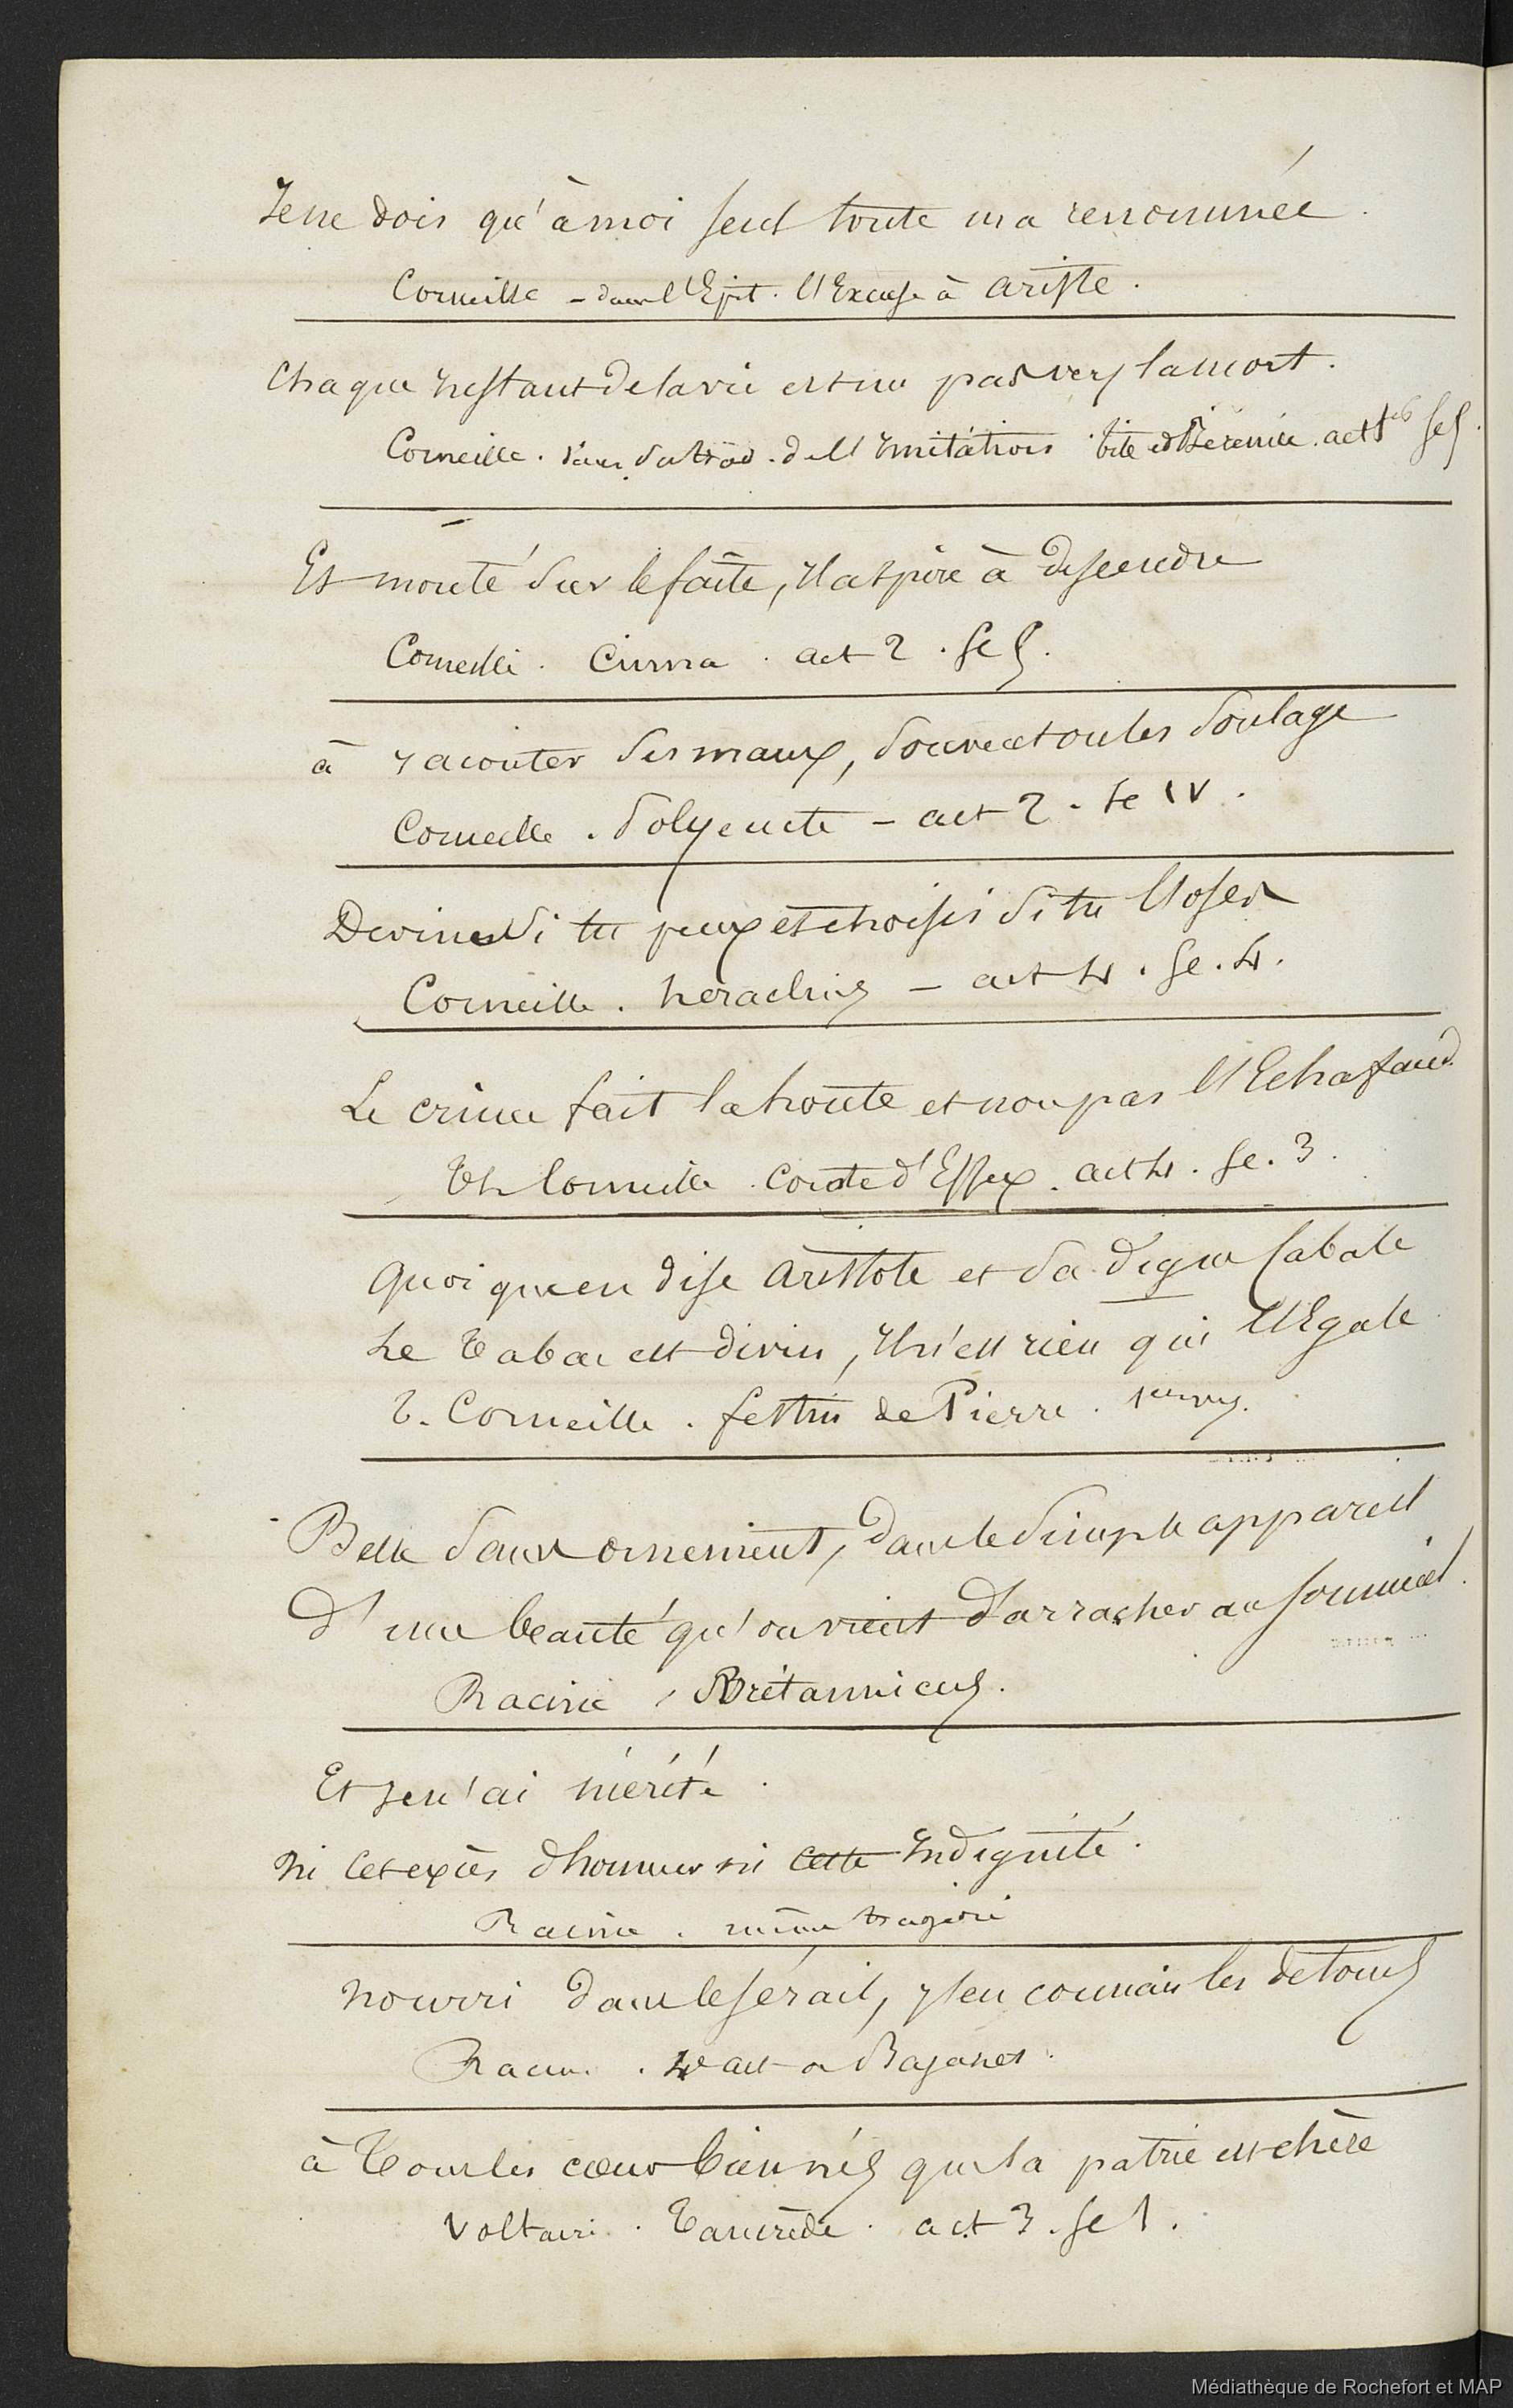 Je ne dois qu'à moi seul toute ma renommée.
Corneille – dans l'Epit. l'Excuse à Ariste.
Chaque Instant de la vie est un pas vers la mort.
Corneille. dans sa trad. de l'Imitation Tite et Bérénice. act 5 sc 1.
Et monté sur le faîte, Il aspire à descendre
Corneille. Cinna. act 2. sc 1.
à raconter ses maux, souvent on les soulage
Corneille. Polyeucte – act 2. sc IV.
Devine si tu peux et choisis si tu l'oses
Corneille. héraclius – act 4. sc. 4.
Le crime fait la honte et non pas l'Echafaud.
Th Corneille. Comte d'Essex. act 4. sc. 3.
Quoi qu'en dise Aristote et sa digne Cabale
Le Tabac est divin, Il n'est rien qui l'Egale
T. Corneille. festin de Pierre. 1ers vers.
Belle sans ornement, dans le simple appareil
D'une beauté qu'on vient d'arracher au sommeil.
Racine, Britannicus.
Et Je n'ai mérité.
ni cet excès d'honneur ni cette Indignité.
Racine. même tragédie
nourri dans le sérail, J'en connais les détours
Racine. 4e act de Bajazet.
à Tous les cœurs bien nés que la patrie est chère
Voltaire. Tancrède. act 3. sc 1.
Médiathèque de Rochefort et MAP